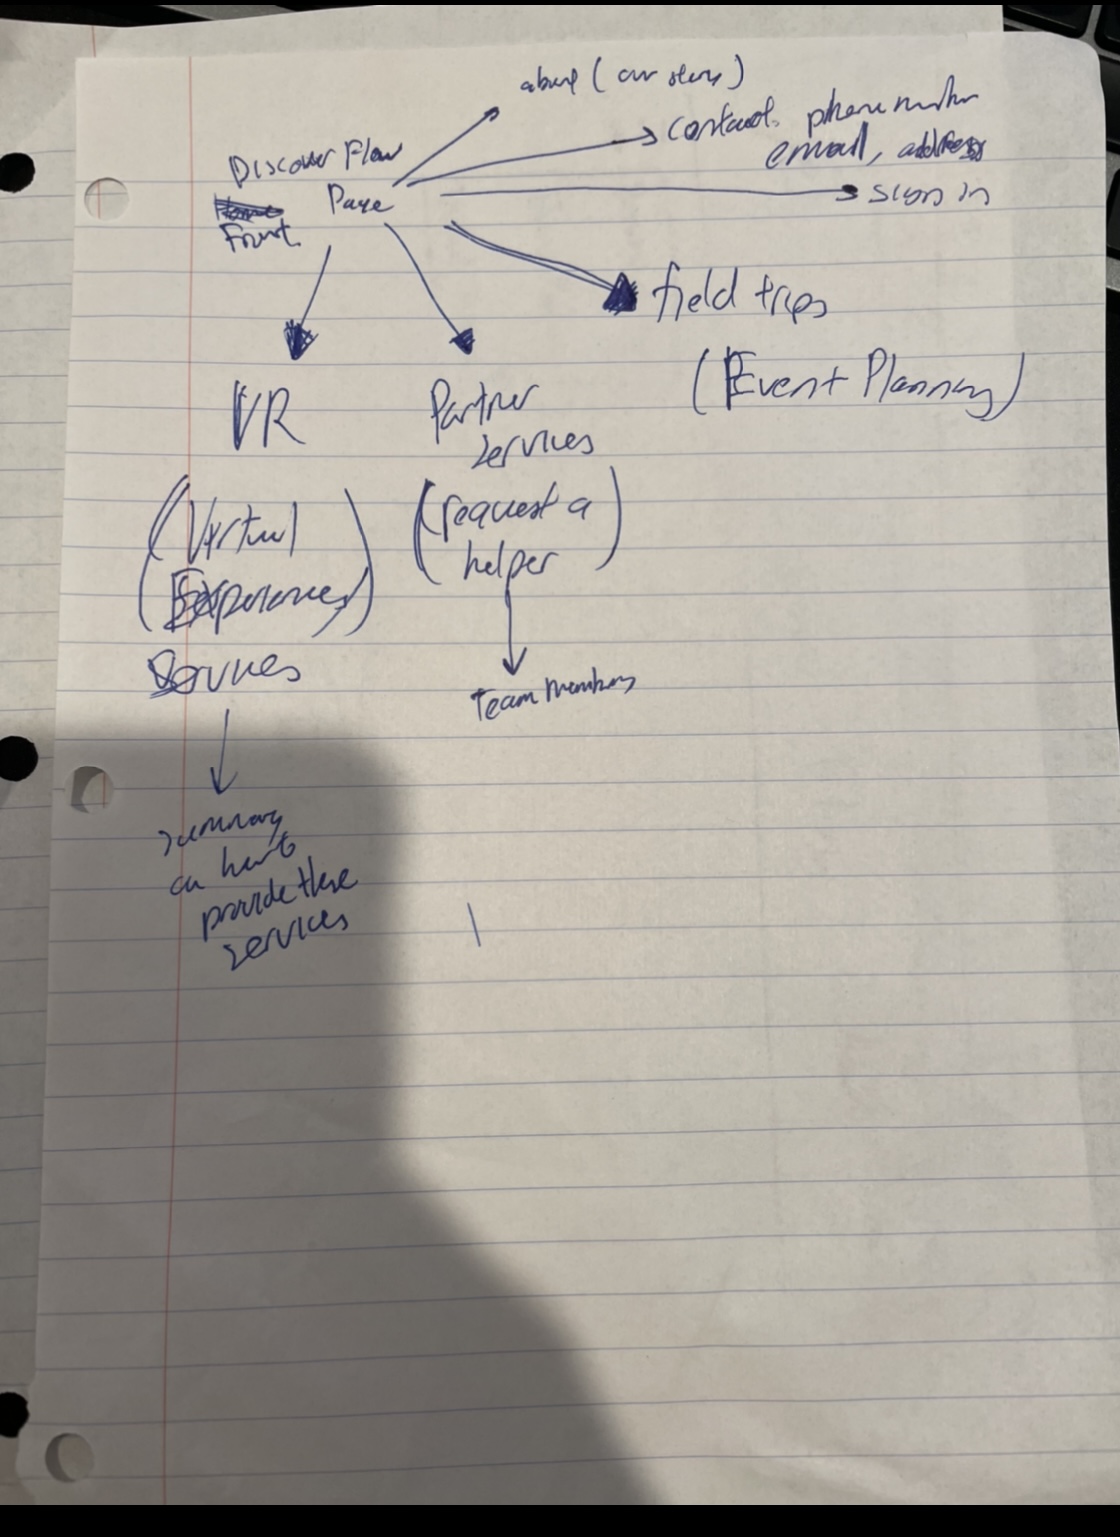 about (our story)
contact. phone number
email, address
Discover Flow
sign in
Home Page
Front
field trips
(Event Planning)
VR
Partner
services
(Virtual
Experiences)
Services
(request a
helper)
Team members
summary
on how to
provide these
services